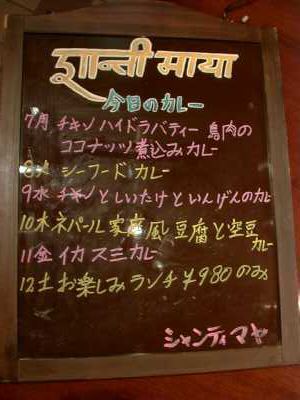 शान्ती माया
今日のカレー
7月 チキン ハイドラバティー 鳥肉の
ココナッツ煮込みカレー
8火 シーフード カレー
9水 チキンとしいたけといんげんのカレー
10木 ネパール家庭風 豆腐と空豆
カレー
11金 イカスミカレー
12土 お楽しみランチ ¥980のみ
シャンティマヤ